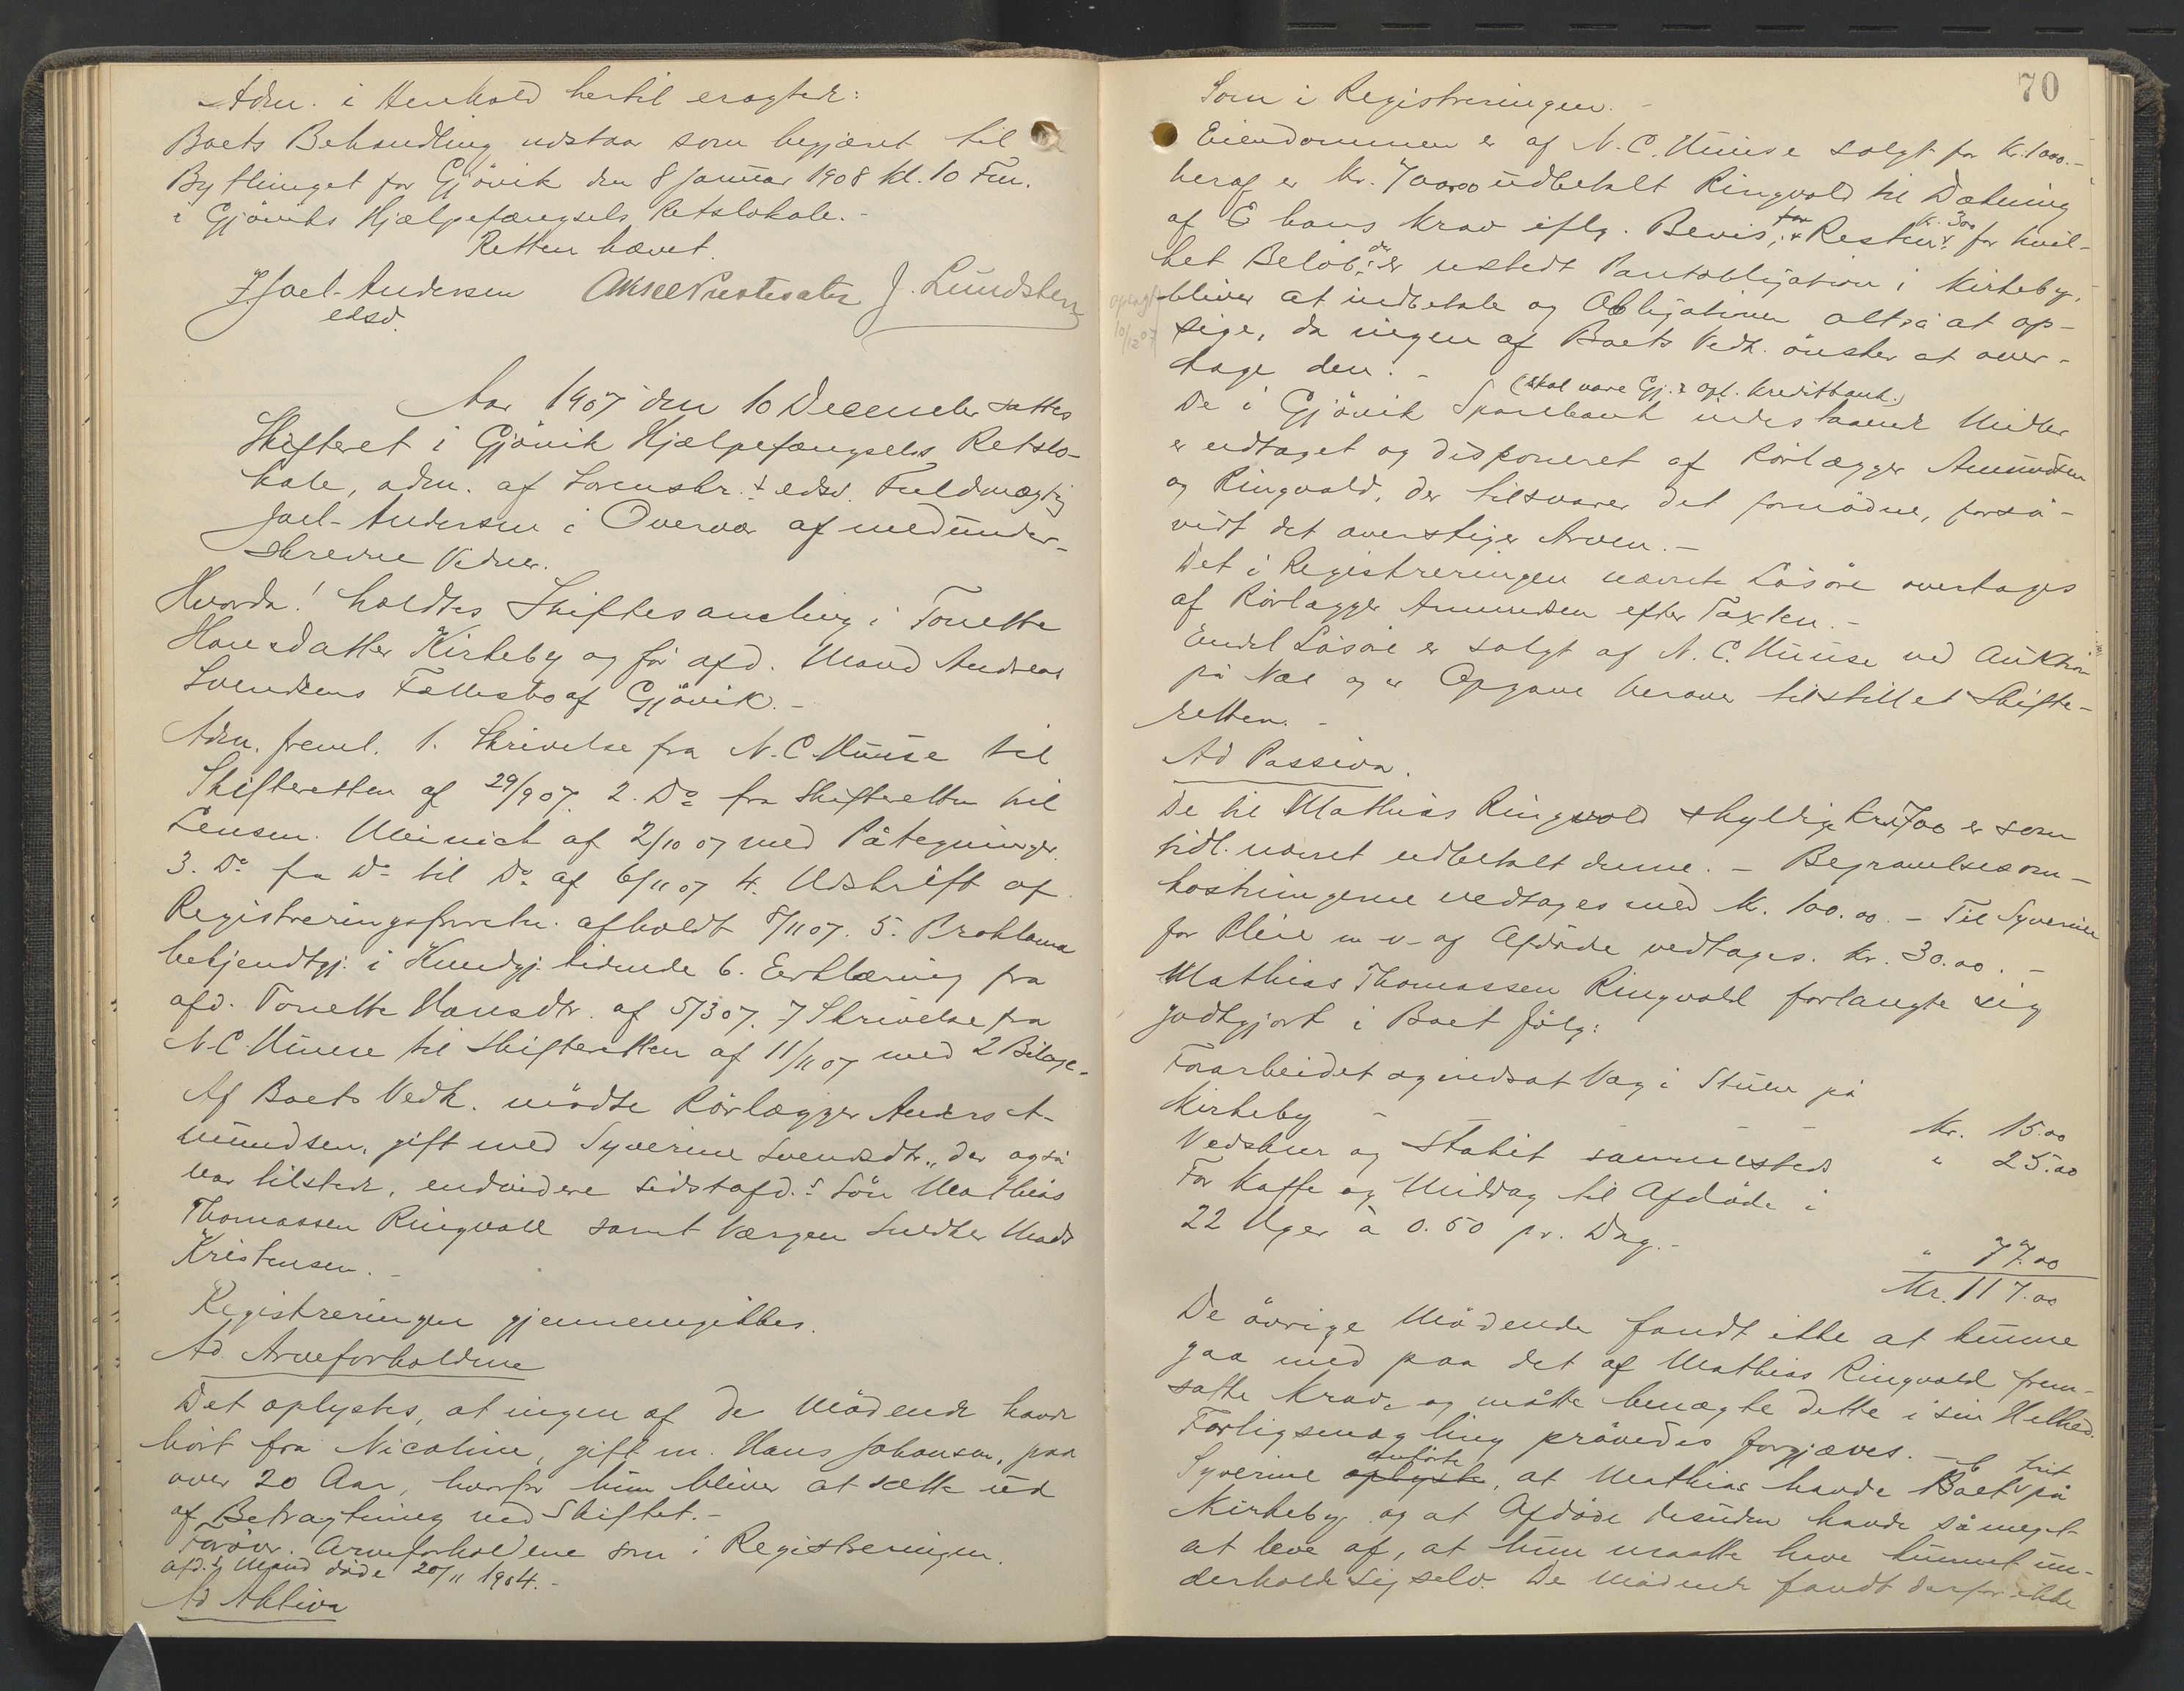 Adm. i Henhold hertil eragtede:
Boets Behandling udstaar som begjært til
Bythinget for Gjövik den 8 Januar 1908 kl. 10 Fm.
i Gjöviks Hjælpefængsels Retslokale.-
Retten hævet.
Joel-Andersen J. Lundsten
edsv.
Aar 1907 den 10 December sattes
Skifteret i Gjövik Hjælpefængsels Retslo-
kale, adm. af Sorenskr.s edsv. Fuldmægtig
Joel-Andersen i Overvær af medunder-
skrevne Vidner.
Hvorda! holdtes Skiftesamling i Tonette
Hansdatter Kirkeby og før afd. Mand Andreas
Svendsens Fællesbo af Gjövik.-
Adm. freml. 1. Skrivelse fra N.C. Huuse til
Skifteretten af 29/9 07. 2. Do fra Skifteretten til
Lensm. Meinich af 2/10 07 med Påtegninger.
3. Do fra Do til Do af 6/11 07 4. Udskrift af
Registreringsforretn. afholdt 8/11 07. 5. Proklama
bekjendtgj. i Kundgj. tidende 6. Erklæring fra
afd. Tonette Hansdtr. af 5/3 07. 7 Skrivelse fra
N.C. Huuse til Skifteretten af 11/11 07 med 2 Bilage.
Af Boets Vedk. mödte Rörlægger Anders A-
mundsen, gift med Syverine Svendsdtr., der også
var tilstede, endvidere sidstafd.s Sön Mathias
Thomassen Ringvold samt Værgen Snedker Mads
Kristensen.-
Registreringen gjennemgikkes.
Ad Arveforholdene
Det oplystes, at ingen af de Mödende havde
hört fra Nicoline, gift m. Hans Johansen, paa
over 20 Aar, hvorfor hun bliver at sætte ud
af Betragtning ved Skiftet.-
Forövr. Arveforholdene som i Registreringen.
afd.s Mand döde 20/11 1904.-
Ad Aktiva
70
Som i Registreringen.-
Eiendommen er af N.C. Huuse solgt for Kr. 1000.-
heraf er Kr. 700.00 udbetalt Ringvold til Dækning
af hans Krav iflg. Bevis, Resten kr. 300 for hvil-
ket Belöb der er udstedt Pantobligation i Kirkeby,
oplagt 10/12 07
bliver at indbetale og Obligationen altså at op-
sige, da ingen af Boets Vedk. önsker at over-
tage den.-
(skal være Gj. & opl. Kreditbank.)
De i Gjövik Sparebank indestaaende Midler
er udtaget og disponeret af Rörlægger Amundsen
og Ringvold, der tilsvarer det fornödne, forså-
vidt det overstiger Arven.-
Det i Registreringen nævnte Lösöre overtages
af Rörlægger Amundsen efter Taxten.-
Endel Lösöre er solgt af N.C. Huuse ved Auktion
på Næs og er Opgave herover tilstillet Skifte-
retten.-
Ad Passiva.
De til Mathias Ringvold skyldige Kr 700 er som
tidl. nævnt udbetalt denne.- Begravelsesom-
kostningerne vedtages med Kr. 100.00.- Til Syverine
for Pleie m v. af Afdöde vedtages Kr. 30.00.-
Mathias Thomassen Ringvold forlangte sig
godtgjort i Boet fölg:
Forarbeidet og indsat Væg i Stuen på
Kirkeby - - Kr. 15.00
Vedskur og Stakit sammesteds " 25.00
For Kaffe og Middag til Afdöde i
22 Uger à 0.50 pr. Dag.- " 77.00
Kr. 117.00
De övrige Mödende fandt ikke at kunne
gaa med paa det af Mathias Ringvold frem-
satte Krav, og måtte benægte dette i sin Helhed.
Forligsmægling prövedes forgjæves.-
Syverine oplyste anförte, at Mathias havde Boet frit på
Kirkeby og at Afdöde desuden havde så meget
at leve af, at hun maatte have kunnet un-
derholde sig selv. De Mödende fandt derfor ikke